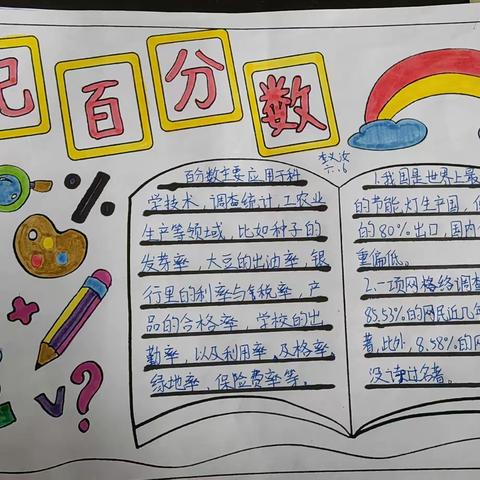 记百分数
%
李义汝
六.6
百分数主要应用于科
学技术，调查统计，工农业
生产等领域，比如种子的
发芽率，大豆的出油率，银
行里的利率与税率，产
品的合格率，学校的出
勤率，以及利用率、及格率、
绿地率，保险费率等。
1.我国是世界上最
的节能灯生产国，
的80%出口，国内
重偏低。
2.一项网格络调查
85.53%的网民近几年
著，此外，8.58%的网
没读过名著。